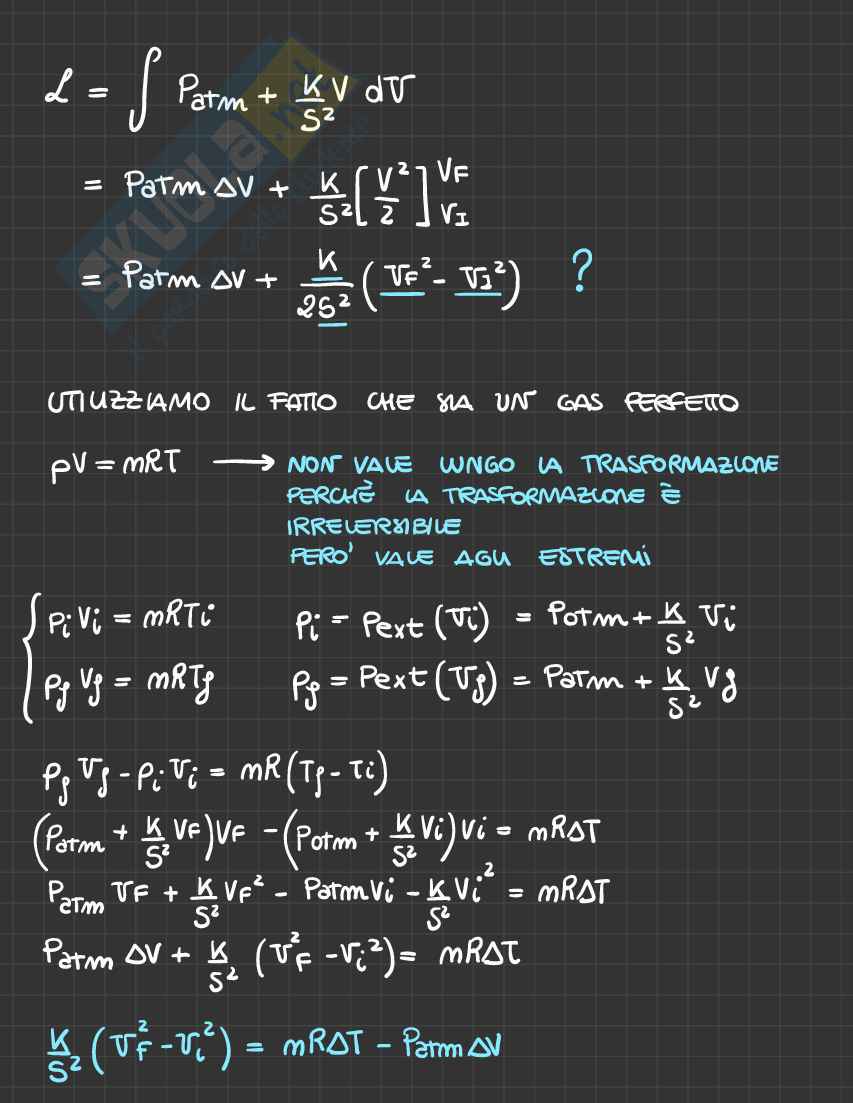 L = ∫ Patm + K/S² V dV
= Patm ΔV + K/S² [V²/2] VF VI
= Patm ΔV + K/2S² (VF² - VI²) ?
UTILIZZIAMO IL FATTO CHE SIA UN GAS PERFETTO
pV = mRT → NON VALE LUNGO LA TRASFORMAZIONE
PERCHÈ LA TRASFORMAZIONE È
IRREVERSIBILE
PERO' VALE AGLI ESTREMI
{ pi Vi = mRTi pi = Pext (Vi) = Patm + K/S² Vi
pf Vf = mRTf pf = Pext (Vf) = Patm + K/S² Vf
pf Vf - pi Vi = mR (Tf - Ti)
(Patm + K/S² VF) VF - (Patm + K/S² Vi) Vi = mRΔT
Patm VF + K/S² VF² - Patm Vi - K/S² Vi² = mRΔT
Patm ΔV + K/S² (VF² - Vi²) = mRΔT
K/S² (VF² - Vi²) = mRΔT - Patm ΔV
SKUOLA.net